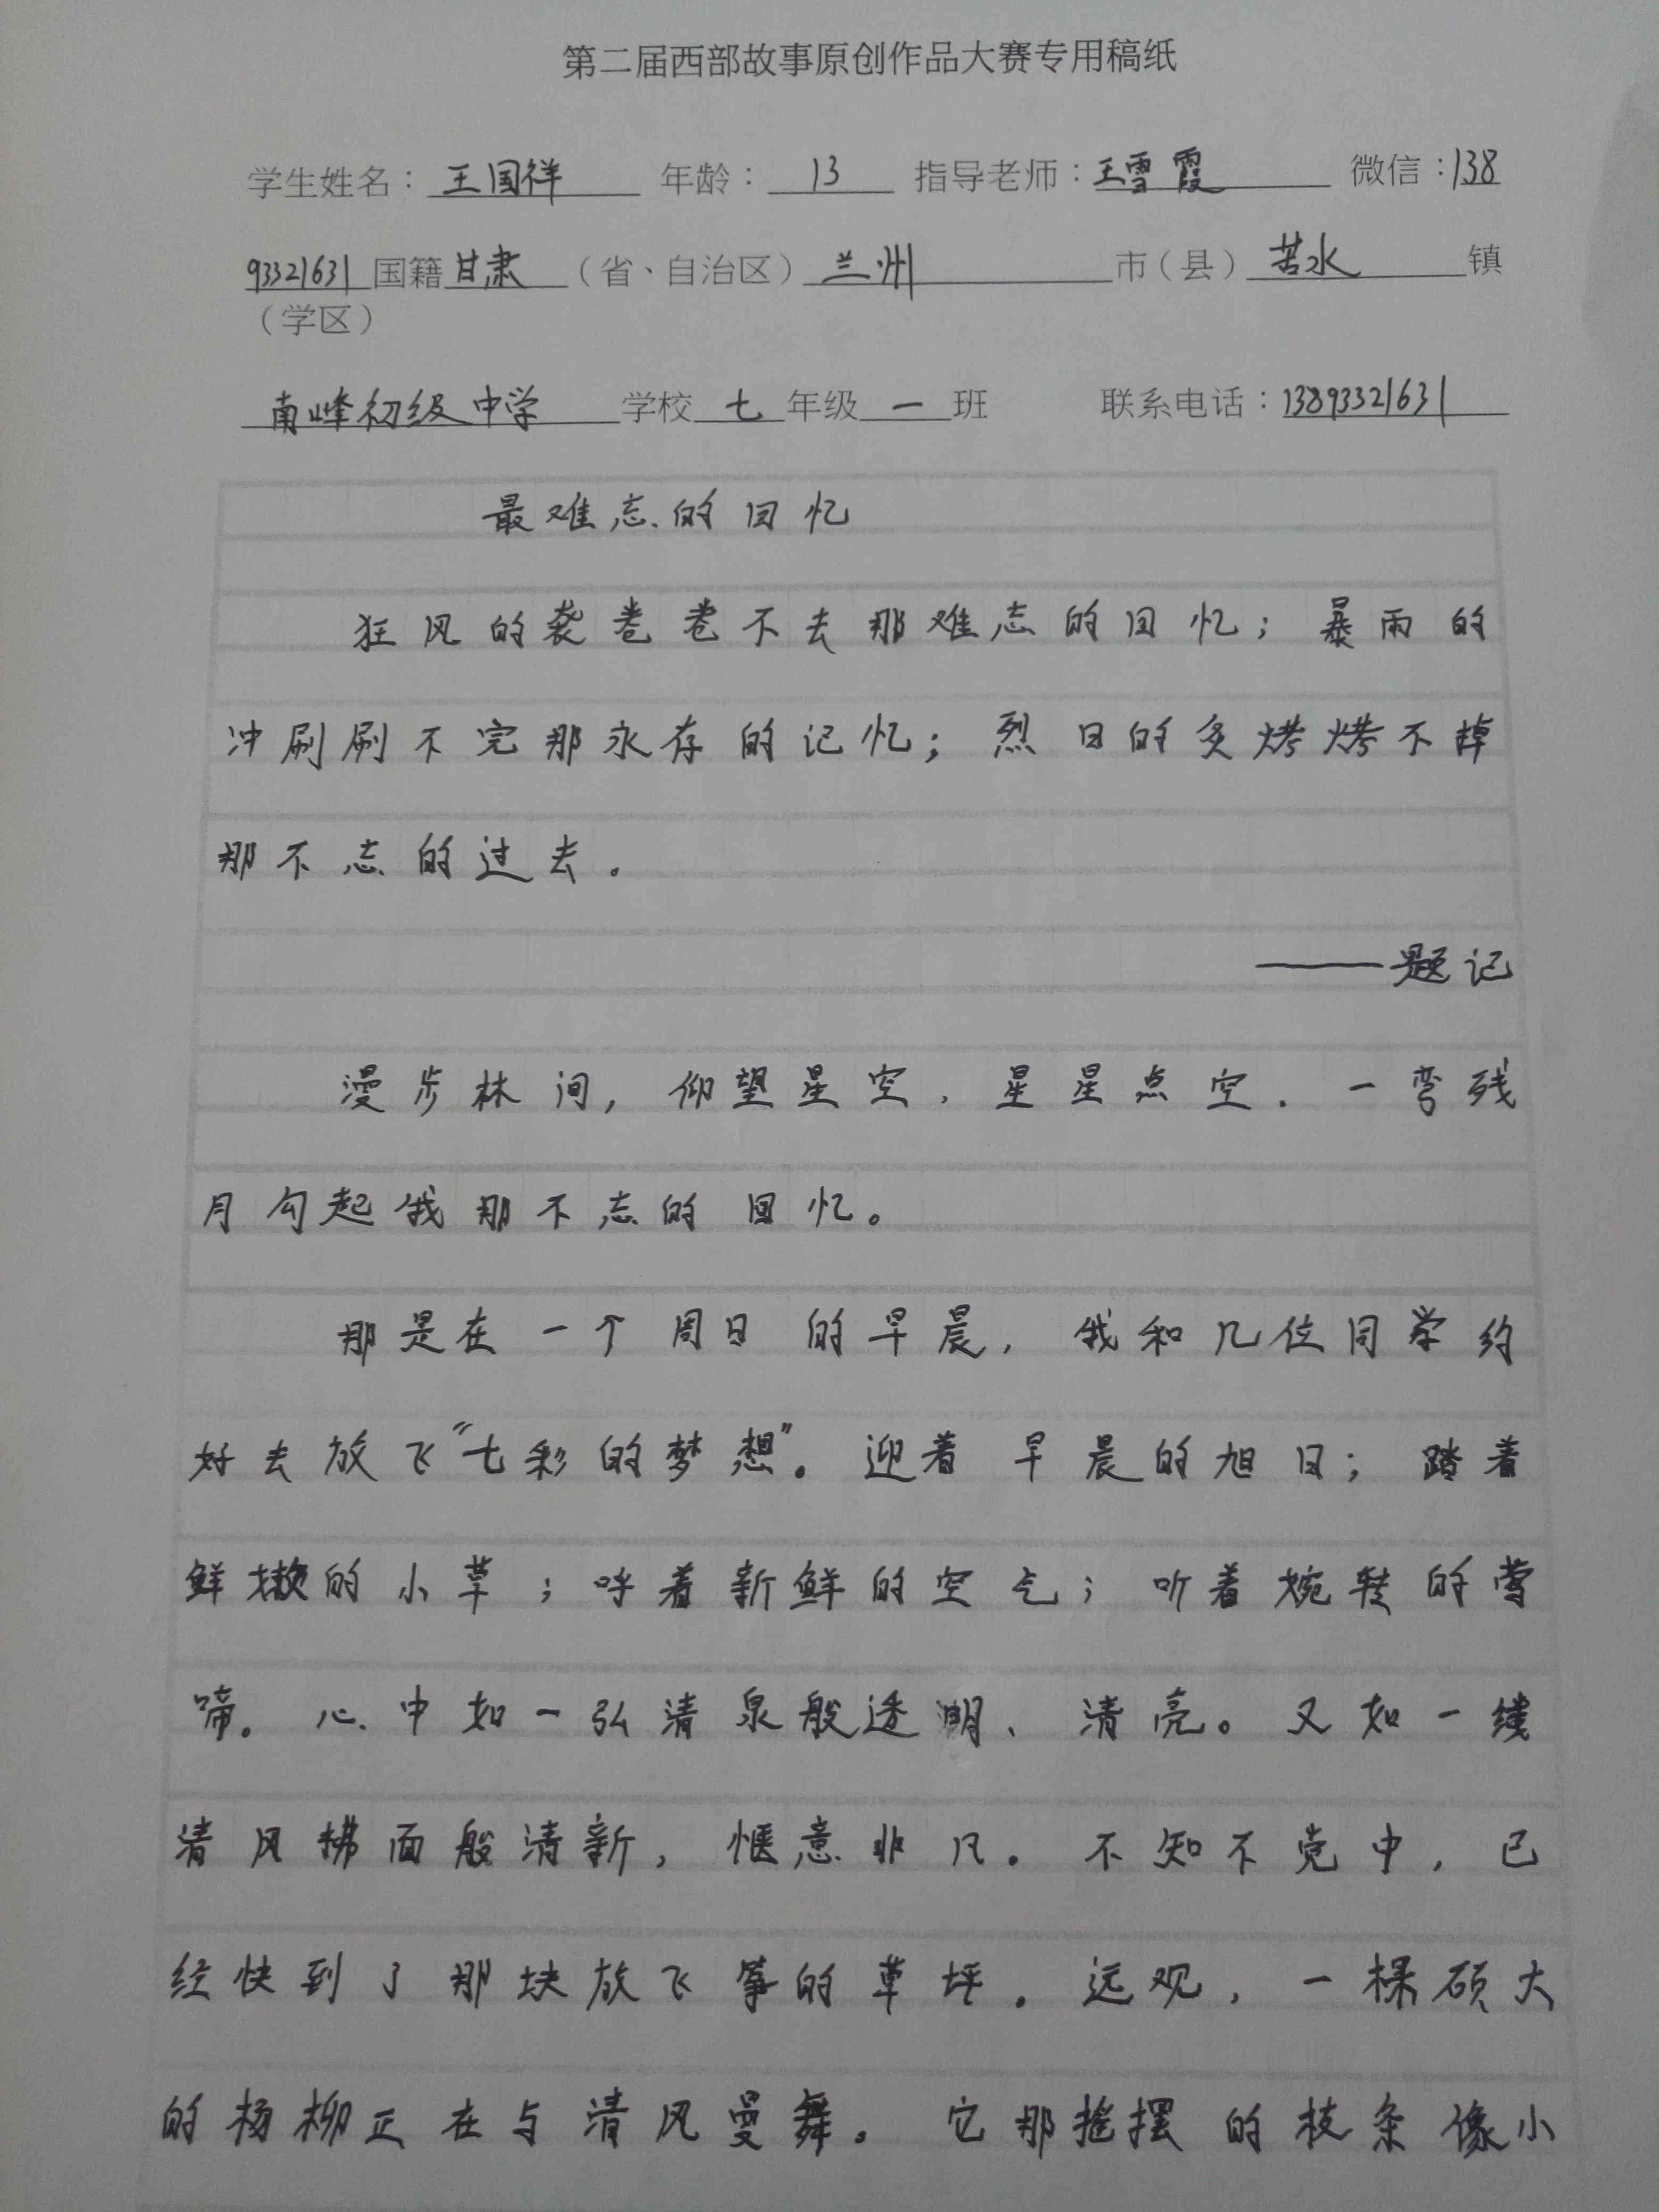 第二届西部故事原创作品大赛专用稿纸
学生姓名：王国祥 年龄：13 指导老师：王雪霞 微信：138
93321631国籍甘肃（省、自治区）兰州市（县）苦水镇
（学区）
南峰初级中学学校七年级一班 联系电话：13893321631
最难忘的回忆
狂风的袭卷卷不去那难忘的回忆；暴雨的
冲刷刷不完那永存的记忆；烈日的炙烤烤不掉
那不忘的过去。
——题记
漫步林间，仰望星空，星星点空．一弯残
月勾起我那不忘的回忆。
那是在一个周日的早晨，我和几位同学约
好去放飞“七彩的梦想”。迎着早晨的旭日；踏着
鲜嫩的小草；呼着新鲜的空气；听着婉转的莺
啼。心中如一弘清泉般透明、清亮。又如一缕
清风拂面般清新，惬意非凡。不知不觉中，已
经快到了那块放飞筝的草坪。远观，一棵硕大
的杨柳正在与清风曼舞。它那摇摆的枝条像小